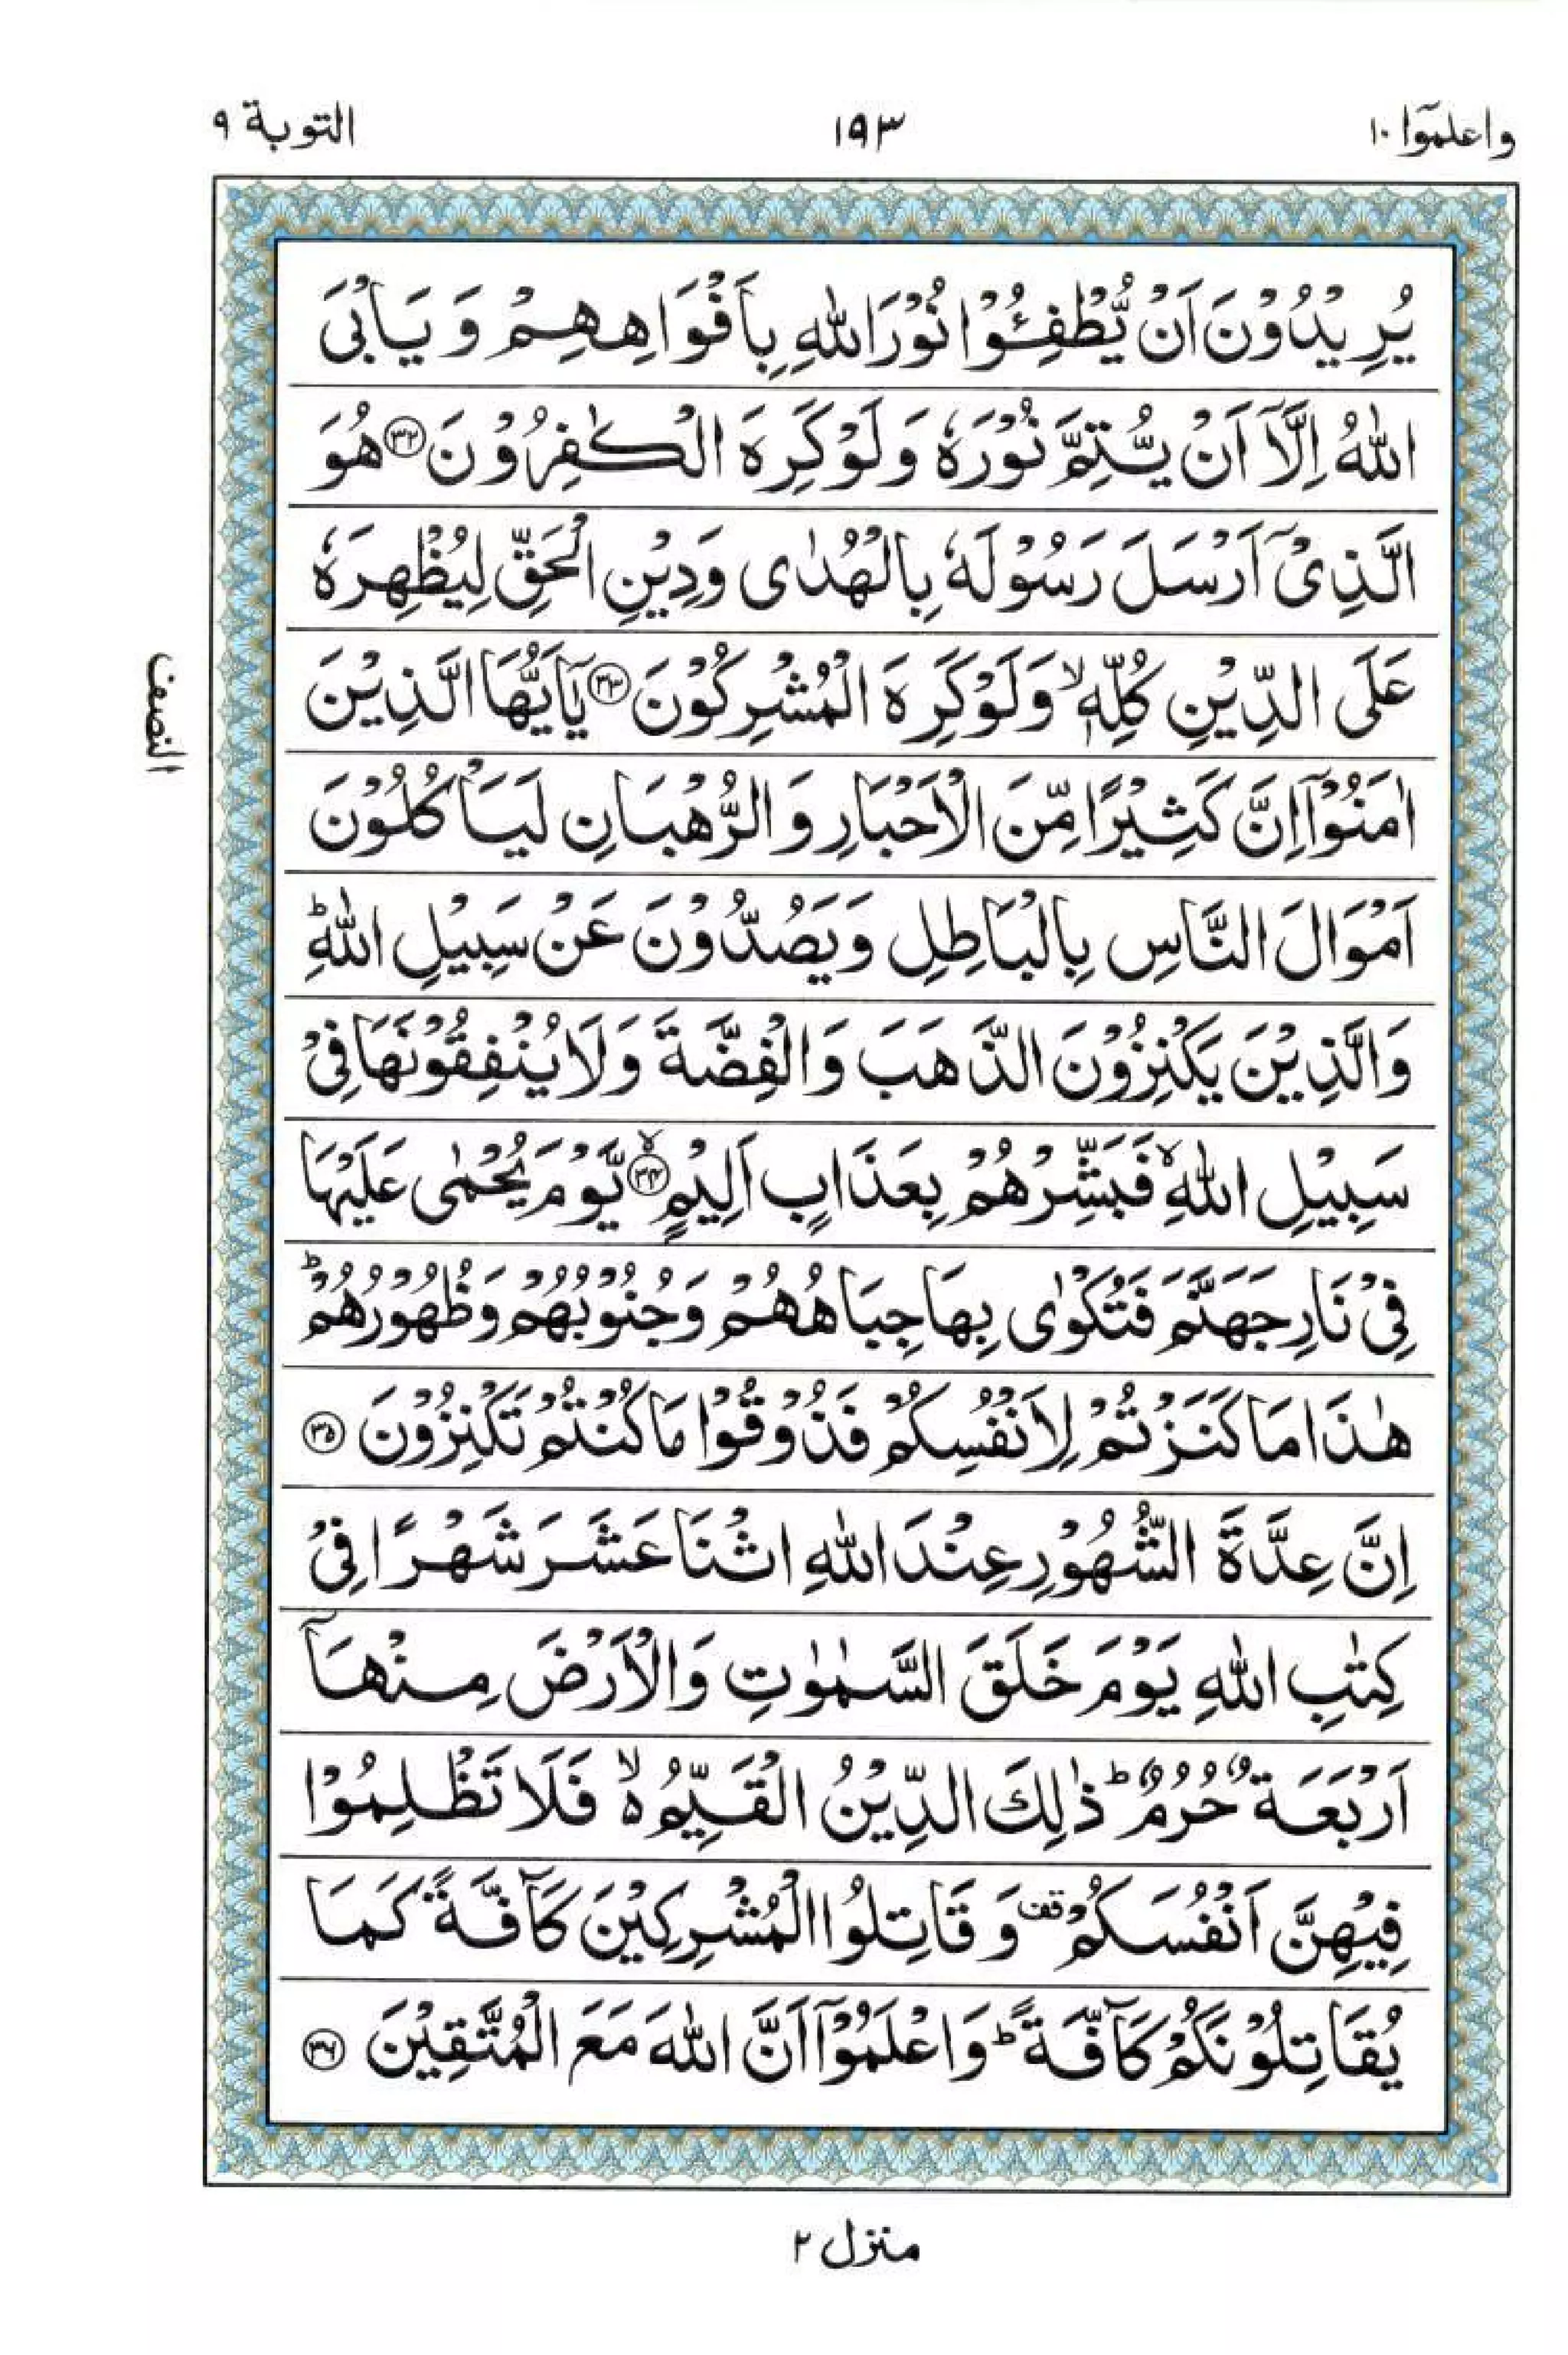 واعلموٓا ١٠
١٩٣
التوبة ٩
يُرِيْدُوْنَ اَنْ يُّطْفِـُٔوْا نُوْرَ اللّٰهِ بِاَفْوَاهِهِمْ وَيَاْبَى
اللّٰهُ اِلَّاۤ اَنْ يُّتِمَّ نُوْرَهٗ وَلَوْ كَرِهَ الْكٰفِرُوْنَ ۝٣٢ هُوَ
الَّذِيْۤ اَرْسَلَ رَسُوْلَهٗ بِالْهُدٰى وَدِيْنِ الْحَقِّ لِيُظْهِرَهٗ
عَلَى الدِّيْنِ كُلِّهٖ ۙ وَلَوْ كَرِهَ الْمُشْرِكُوْنَ ۝٣٣ يٰۤاَيُّهَا الَّذِيْنَ
اٰمَنُوْۤا اِنَّ كَثِيْرًا مِّنَ الْاَحْبَارِ وَالرُّهْبَانِ لَيَاْكُلُوْنَ
اَمْوَالَ النَّاسِ بِالْبَاطِلِ وَيَصُدُّوْنَ عَنْ سَبِيْلِ اللّٰهِ ؕ
وَالَّذِيْنَ يَكْنِزُوْنَ الذَّهَبَ وَالْفِضَّةَ وَلَا يُنْفِقُوْنَهَا فِيْ
سَبِيْلِ اللّٰهِ ۙ فَبَشِّرْهُمْ بِعَذَابٍ اَلِيْمٍ ۝٣٤ ۙ يَّوْمَ يُحْمٰى عَلَيْهَا
فِيْ نَارِ جَهَنَّمَ فَتُكْوٰى بِهَا جِبَاهُهُمْ وَجُنُوْبُهُمْ وَظُهُوْرُهُمْ ؕ
هٰذَا مَا كَنَزْتُمْ لِاَنْفُسِكُمْ فَذُوْقُوْا مَا كُنْتُمْ تَكْنِزُوْنَ ۝٣٥
اِنَّ عِدَّةَ الشُّهُوْرِ عِنْدَ اللّٰهِ اثْنَا عَشَرَ شَهْرًا فِيْ
كِتٰبِ اللّٰهِ يَوْمَ خَلَقَ السَّمٰوٰتِ وَالْاَرْضَ مِنْهَاۤ
اَرْبَعَةٌ حُرُمٌ ؕ ذٰلِكَ الدِّيْنُ الْقَيِّمُ ۙ فَلَا تَظْلِمُوْا
فِيْهِنَّ اَنْفُسَكُمْ قف وَقَاتِلُوا الْمُشْرِكِيْنَ كَآفَّةً كَمَا
يُقَاتِلُوْنَكُمْ كَآفَّةً ؕ وَاعْلَمُوْۤا اَنَّ اللّٰهَ مَعَ الْمُتَّقِيْنَ ۝٣٦
النصف
منزل ٢